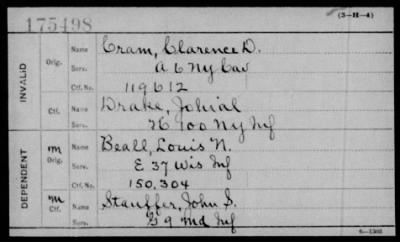 175498
(3-H-4)
INVALID
Orig.
Name Cram, Clarence D.
Serv. A 6 Ny Cav
Ctf. No. 119612
Ctf.
Name Drake,
Serv. 100 Ny Inf
DEPENDENT
m
Orig.
Name Beall, Louis N.
Serv. E 37 Wis Inf
Ctf. No. 150,304
m
Ctf.
Name Stauffer, John S.
Serv. 9 Md Inf